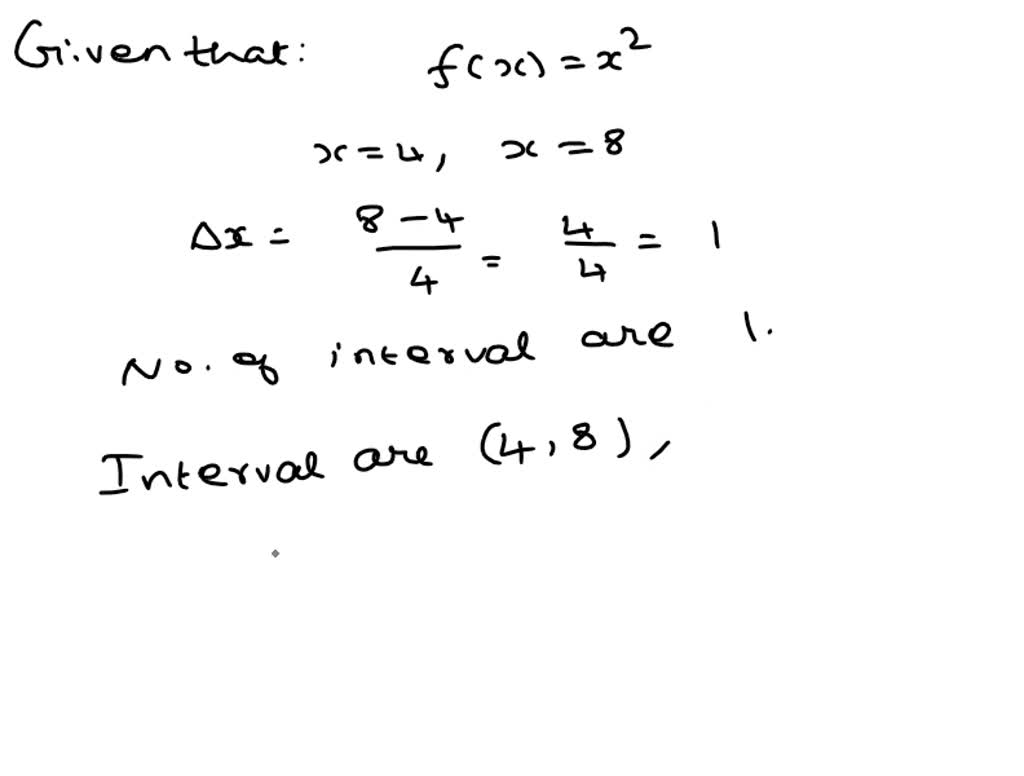 Given that: f(x) = x²
x = 4, x = 8
Δx = 8 - 4 / 4 = 4 / 4 = 1
No. of interval are 1.
Interval are (4, 8),